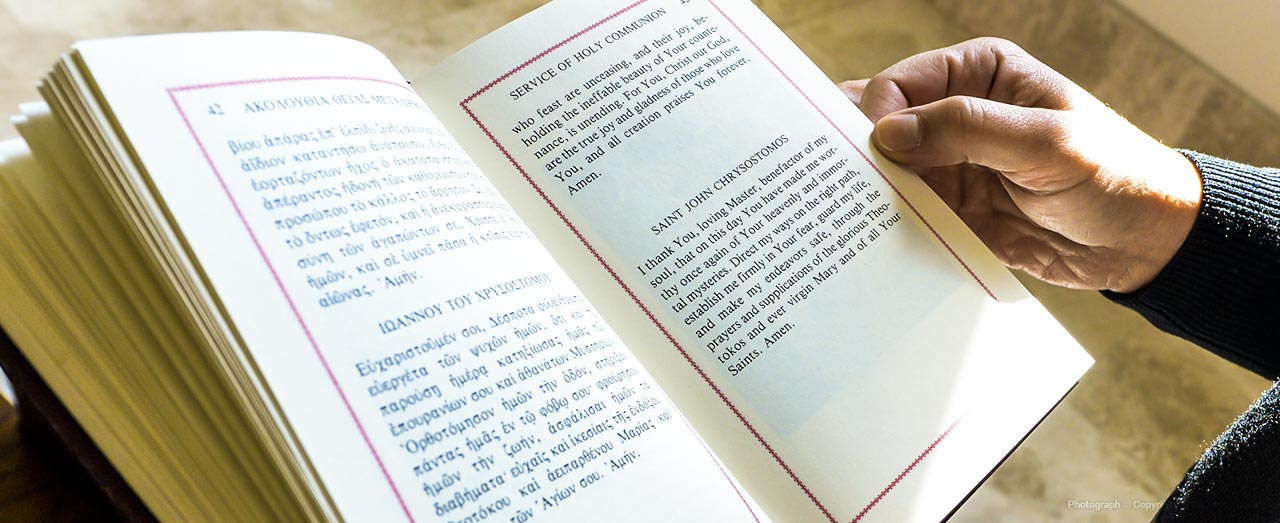 42 ΑΚΟΛΟΥΘΙΑ ΘΕΙΑΣ
βίου ἀπάρας ἐπ' ἐλπίδι ζωῆς
ἀΐδιον καταντήσω ἀνάπαυσιν,
ἑορταζόντων ἦχος ὁ ἀκατάπαυστος
ἀπέραντος ἡδονὴ τῶν καθορώντων
προσώπου τὸ κάλλος τὸ ἄρρητον.
τὸ ὄντως ἐφετόν, καὶ ἡ ἀνέκφραστος
σύνη τῶν ἀγαπώντων σε, Χριστὲ
ἡμῶν, καὶ σὲ ὑμνεῖ πᾶσα ἡ κτίσις
αἰῶνας. Ἀμήν.
ΙΩΑΝΝΟΥ ΤΟΥ ΧΡΥΣΟΣΤΟΜΟΥ
Εὐχαριστοῦμέν σοι, Δέσποτα φιλάνθρωπε,
εὐεργέτα τῶν ψυχῶν ἡμῶν, ὅτι καὶ
παρούσῃ ἡμέρᾳ κατηξίωσας ἡμᾶς
ἐπουρανίων σου καὶ ἀθανάτων Μυστηρίων.
Ὀρθοτόμησον ἡμῶν τὴν ὁδόν, στήριξον
πάντας ἡμᾶς ἐν τῷ φόβῳ σου· φρούρησον
ἡμῶν τὴν ζωήν, ἀσφάλισαι ἡμῶν τὰ
διαβήματα εὐχαῖς καὶ ἱκεσίαις τῆς ἐνδόξου
Θεοτόκου καὶ ἀειπαρθένου Μαρίας καὶ
τῶν Ἁγίων σου. Ἀμήν.
SERVICE OF HOLY COMMUNION
who feast are unceasing, and their joy, be-
holding the ineffable beauty of Your counte-
nance, is unending. For You, Christ our God,
are the true joy and gladness of those who love
You, and all creation praises You forever.
Amen.
SAINT JOHN CHRYSOSTOMOS
I thank You, loving Master, benefactor of my
soul, that on this day You have made me wor-
thy once again of Your heavenly and immor-
tal mysteries. Direct my ways on the right path,
establish me firmly in Your fear, guard my life,
and make my endeavors safe, through the
prayers and supplications of the glorious Theo-
tokos and ever virgin Mary and of all Your
Saints. Amen.
Photograph ©